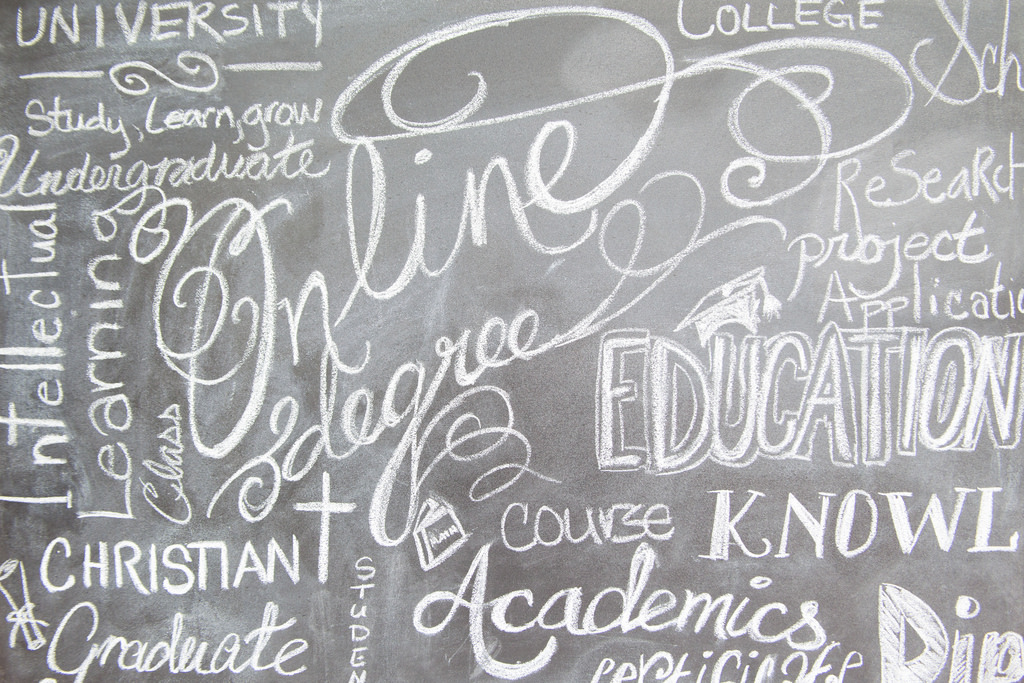 UNIVERSITY
COLLEGE
Sch
Study, Learn, grow
Undergraduate
Online
degree
Research
project
Applicatio
Intellectual
Learning
Class
EDUCATION
MATH
COURSE
KNOWL
CHRISTIAN
STUDEN
Academics
Graduate
certificate
Dip